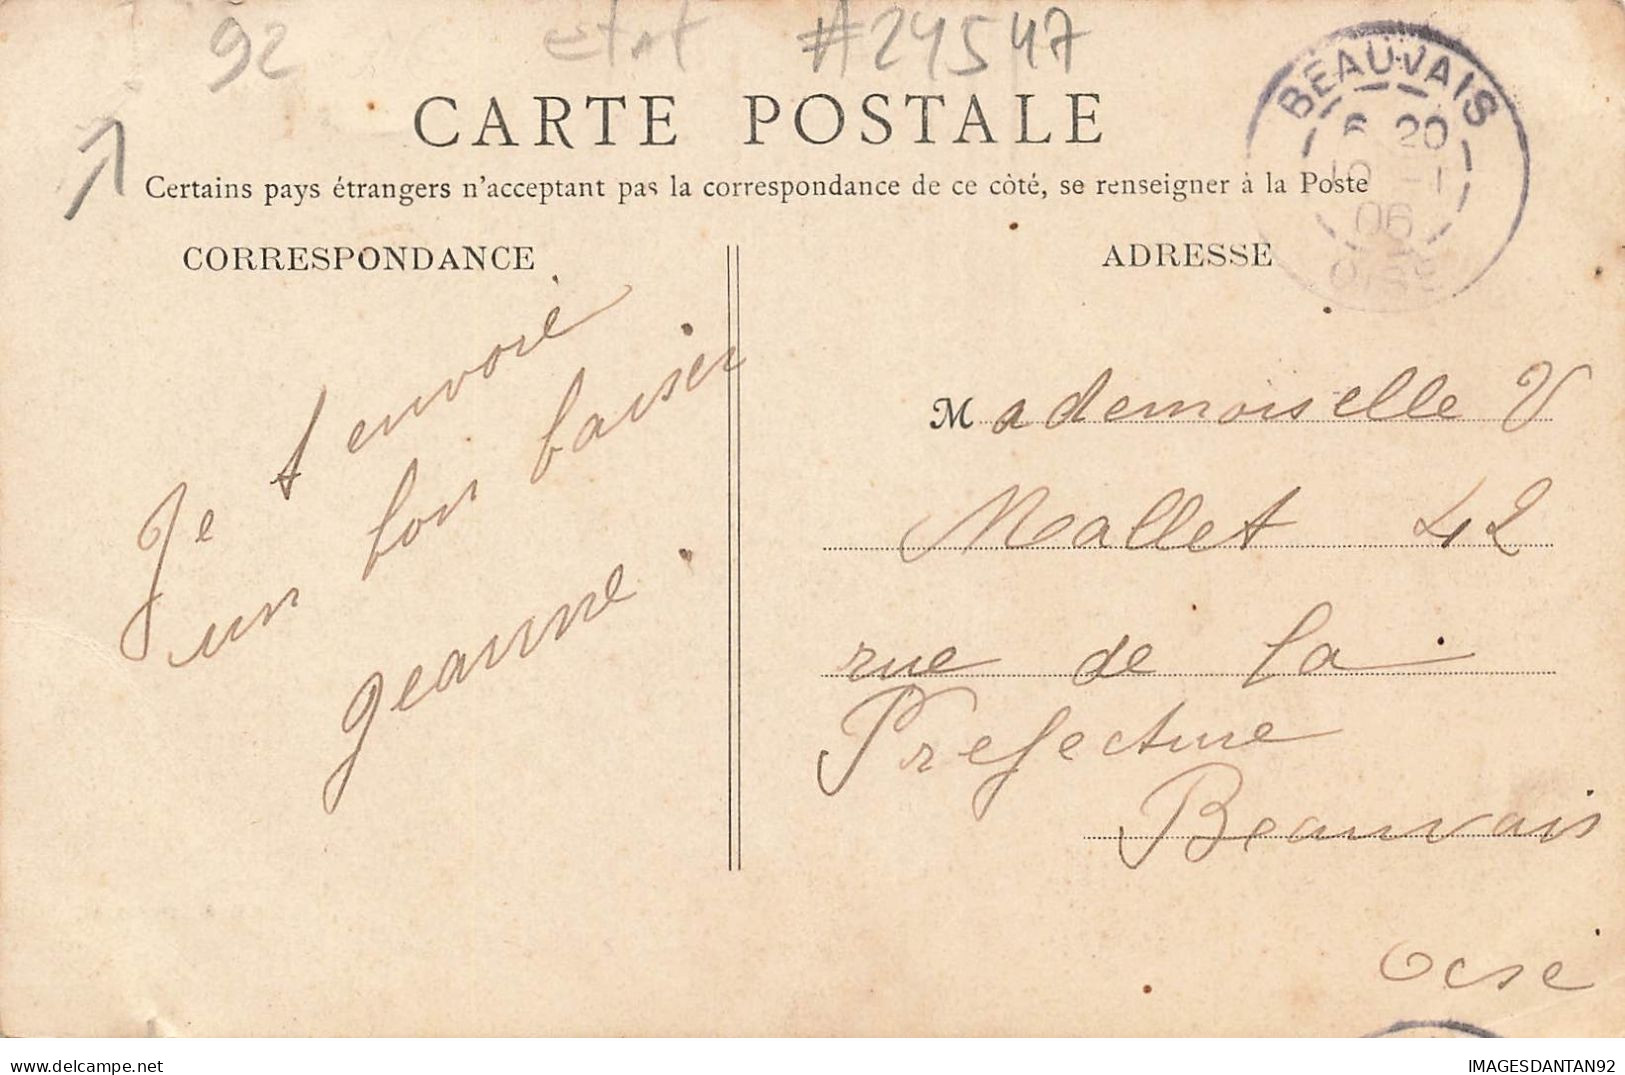 92
etat
#24547
CARTE POSTALE
Certains pays étrangers n'acceptant pas la correspondance de ce côté, se renseigner à la Poste
BEAUVAIS
6 20
10 -1
06
OISE
CORRESPONDANCE
ADRESSE
Je t envoie
un bon baiser
jeanne.
Mademoiselle V
Mallet 42
rue de la
Prefecture
Beauvais
Oise
IMAGESDANTAN92